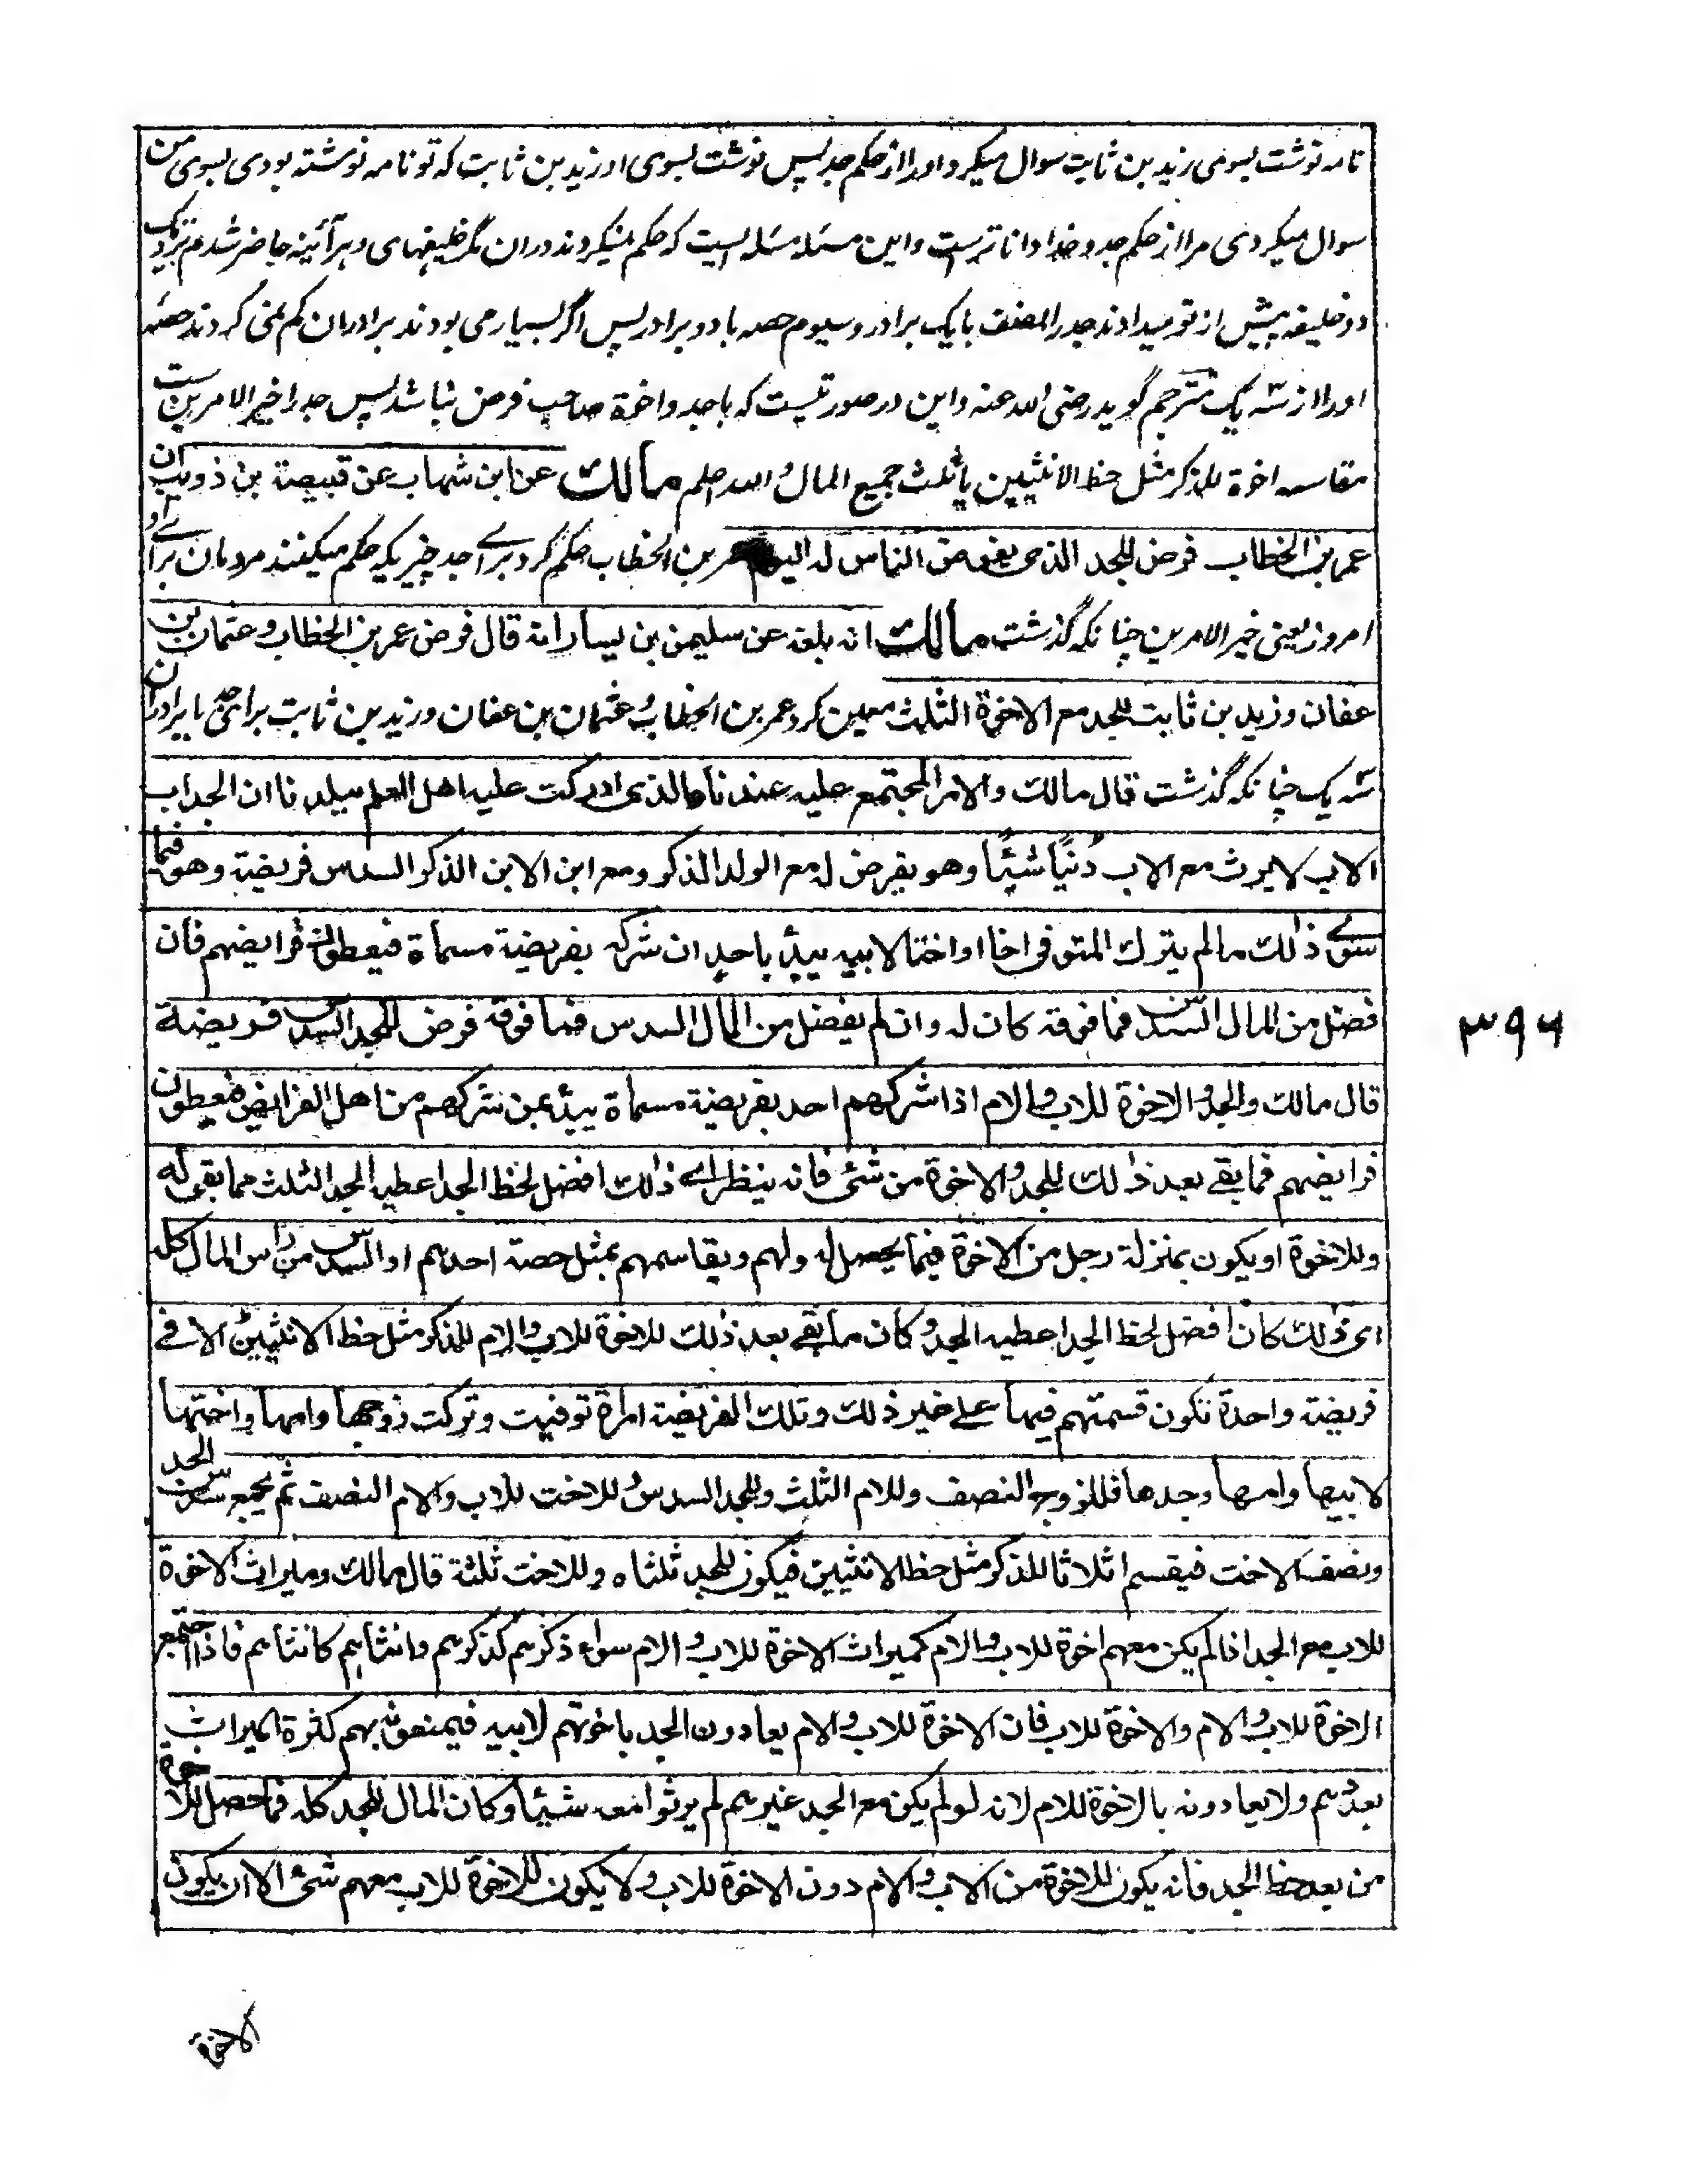 نامه نوشت بسوی زید بن ثابت سوال میکرد اورا از حکم جد پس نوشت بسوی او زید بن ثابت که تو نامه نوشته بودی بسوی من
سوال میکردی مرا از حکم جد و خدا داناترست و این مسئله مسئله ایست که حکم نمیکردند دران مگر خلیفهای و هر آئینه حاضر شدم نزدیک
دو خلیفه پیش از تو میدادند جد را نصف با یک برادر و سیوم حصه با دو برادر پس اگر بسیار می بودند برادران کم نمی کردند حصه
اورا از سه یک مترجم گوید رضی الله عنه و این در صورتیست که با جد و اخوة صاحب فرض نباشد پس جد را خیر الامرین ست
مقاسمه اخوة للذکر مثل حظ الانثیین یا ثلث جمیع المال والله اعلم مالك عن ابن شهاب عن قبیصة بن ذویب ان
عمر بن الخطاب فرض للجد الذی یفرض الناس له الیوم عمر بن الخطاب حکم کرد برای جد چیزیکه حکم میکنند مردمان برای او
امروز یعنی خیر الامرین چنانکه گذشت مالك انه بلغه عن سلیمن بن یسار انه قال فرض عمر بن الخطاب و عثمان بن
عفان وزید بن ثابت للجد مع الاخوة الثلث معین کرد عمر بن الخطاب و عثمان بن عفان و زید بن ثابت برای جد با برادران
سه یک چنانکه گذشت قال مالك والامر المجتمع علیه عندنا والذی ادرکت علیه اهل العلم ببلدنا ان الجد اب
الاب لا یرث مع الاب دنیا شیئا وهو یفرض له مع الولد الذکر ومع ابن الابن الذکر السدس فریضة وهو فیما
سوی ذلك مالم یترك المتوفی اخا او اختا لابیه یبدّء باحد ان شرکه بفریضة مسماة فیعطون فرایضهم فان
فضل من المال السدس فما فوقه کان له وان لم یفضل من المال السدس فما فوقه فرض للجد السدس فریضة
قال مالك والجد والاخوة للاب والام اذا شرکهم احد بفریضة مسماة یبدّء بمن شرکهم من اهل الفرایض فیعطون
فرایضهم فما بقی بعد ذلك للجد والاخوة من شئ فانه ینظر ای ذلك افضل لحظ الجد اعطیه الجد الثلث مما بقی له
وللاخوة او یکون بمنزلة رجل من الاخوة فیما یحصل له ولهم ویقاسمهم بمثل حصة احدهم او السدس من راس المال کله
ای ذلك کان افضل لحظ الجد اعطیه الجد وکان ما بقی بعد ذلك للاخوة للاب والام للذکر مثل حظ الانثیین الا فی
فریضة واحدة تکون قسمتهم فیها علی غیر ذلك وتلك الفریضة امراة توفیت وترکت زوجها وامها واختها
لابیها وامها وجدها فللزوج النصف وللام الثلث وللجد السدس وللاخت للاب والام النصف ثم یجمع سدس الجد
ونصف الاخت فیقسم اثلاثا للذکر مثل حظ الانثیین فیکون للجد ثلثاه وللاخت ثلثة قال مالك ومیراث الاخوة
للاب مع الجد اذا لم یکن معهم اخوة للاب والام کمیراث الاخوة للاب والام سواء ذکرهم کذکرهم وانثاهم کانثاهم فاذا اجتمع
الاخوة للاب والام والاخوة للاب فان الاخوة للاب والام یعادون الجد باخوتهم لابیه فیمنعونه بهم کثرة المیراث
بعددهم ولا یعادونه بالاخوة للام لانه لو لم یکن مع الجد غیرهم لم یرثوا معه شیئا وکان المال للجد کله فما حصل للاخوة
من بعد حظ الجد فانه یکون للاخوة من الاب والام دون الاخوة للاب ولا یکون للاخوة للاب معهم شئ الا ان یکون
۳۹۶
الاخوة